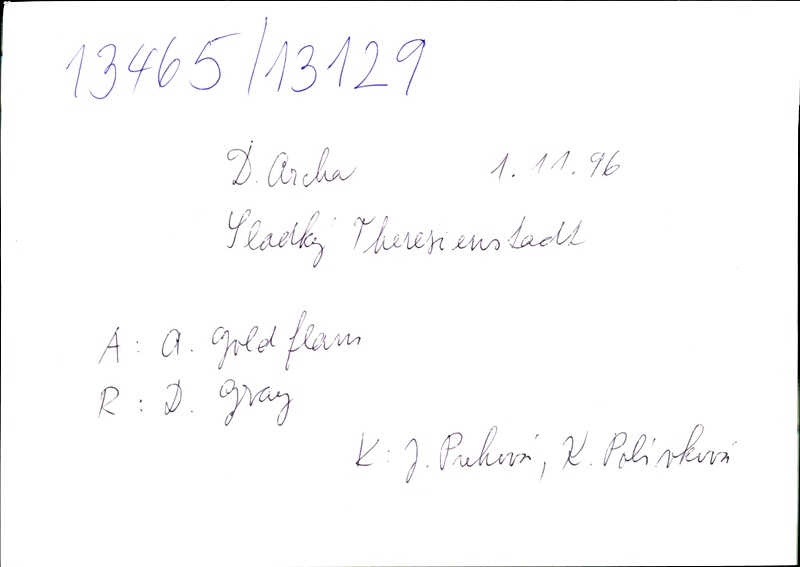 13465/13129
D. Archa 1.11.96
Sladký Theresienstadt
A: A. Goldflam
R: D. Gray
K: J. Preková, K. Polívková